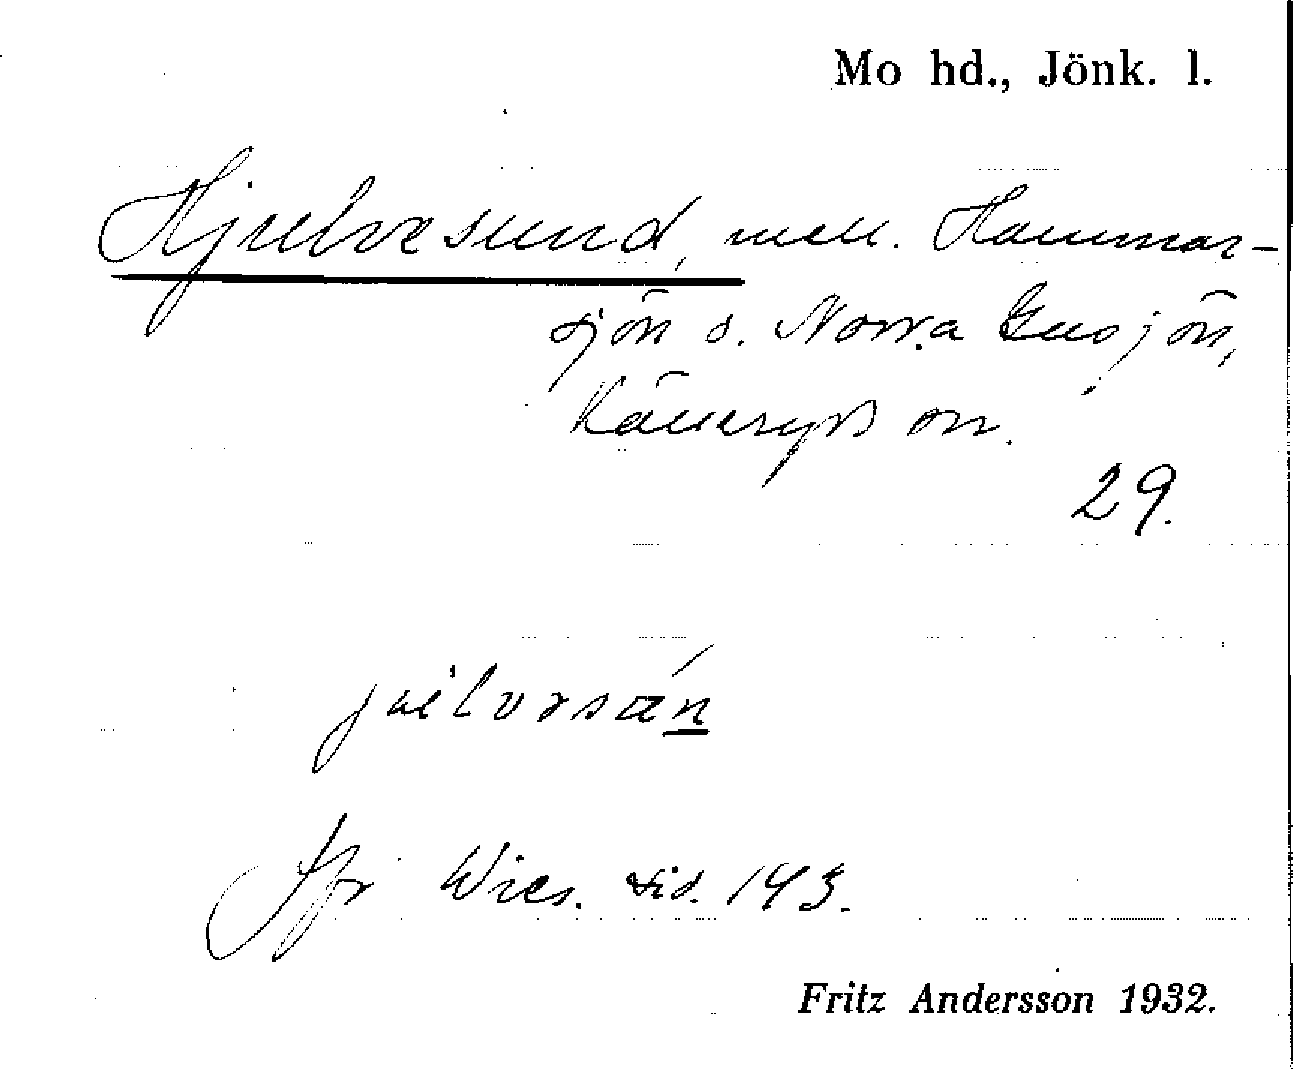 Mo hd., Jönk. l.
Hjulvesund, mell. Hammar-
sjön o. Norra Gusjön,
Källeryds sn.
29.
Jfr Wies. sid. 143.
Fritz Andersson 1932.